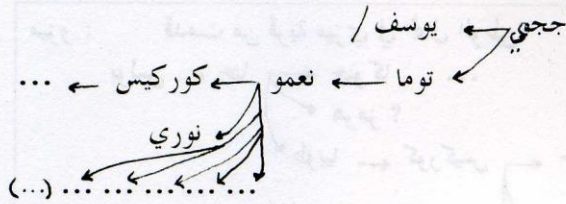 ججي ← يوسف /
توما ← نعمو ← كوركيس ← ...
نوري
... ... ... ... ... (...)